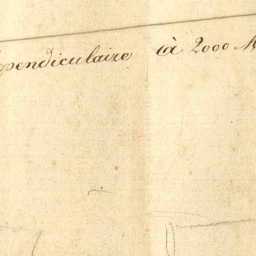 pendiculaire à 2000 M